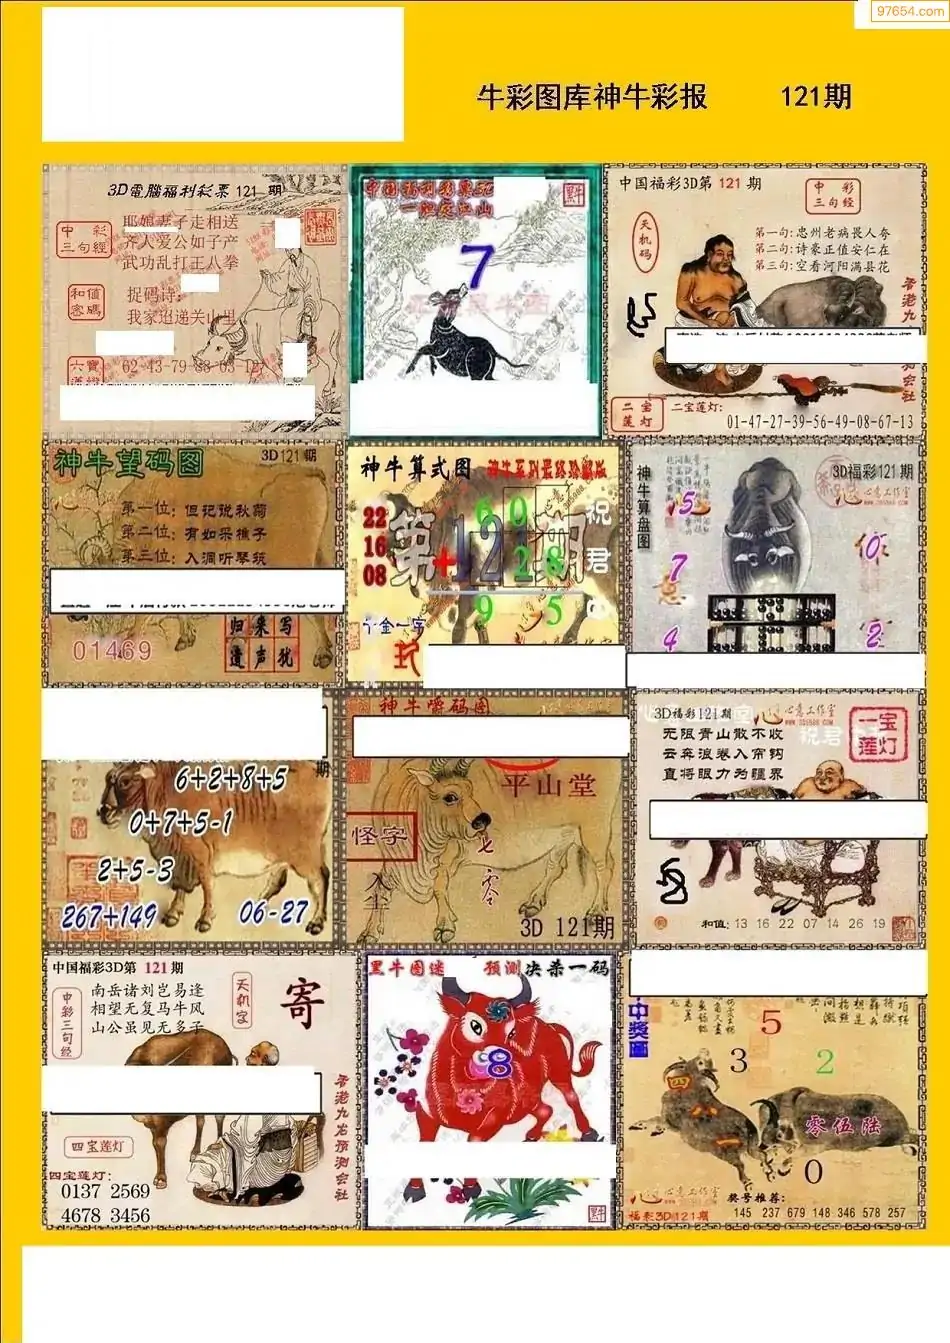 97654.com
牛彩图库神牛彩报 121期
3D電腦福利彩票 121 期
中彩
三句經
耶娘妻子走相送
齐人爱公如子产
武功乱打王八拳
和值
密碼
捉码诗:
我家迢递关山里
六寶
62-43-79-88-03-12
一胆定江山
7
中国福彩3D第 121 期
中彩
三句经
天机码
第一句:忠州老病畏人夸
第二句:诗豪正值安仁在
第三句:空看河阳满县花
二宝
莲灯
二宝莲灯:
01-47-27-39-56-49-08-67-13
神牛望码图
3D121期
第一位: 但记说秋菊
第二位: 有如采樵子
第三位: 入洞听琴筑
01469
归来写
遗声犹
神牛算式图
神牛系列最终珍藏版
22
16
08
60
第121期
+ 28
9 5
祝
君
神牛算盘图
3D福彩121期
心意工作室
5
7
4
0
2
期
6+2+8+5
0+7+5-1
2+5-3
267+149
06-27
神牛嚼码图
平山堂
怪字
七
零
3D 121期
3D福彩121期
心意工作室
一宝
莲灯
无限青山散不收
云奔浪卷入帘钩
直将眼力为疆界
和值: 13 16 22 07 14 26 19
中国福彩3D第 121 期
中彩三句经
南岳诸刘岂易逢
相望无复马牛风
山公虽见无多子
天机字
寄
香港九龙预测会社
四宝莲灯
四宝莲灯:
0137 2569
4678 3456
黑牛图迷 预测决杀一码
8
中獎圖
5
3
2
四
零伍陆
0
心意工作室
奖号推荐:
福彩3D121期
145 237 679 148 346 578 257